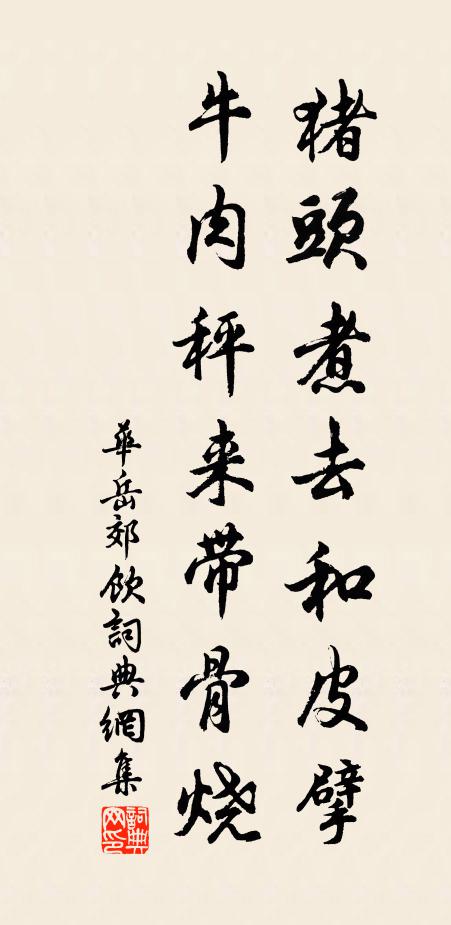 猪頭煮去和皮擘
牛肉秤来带骨烧
華岳郊飲詞典網集
詞典网印